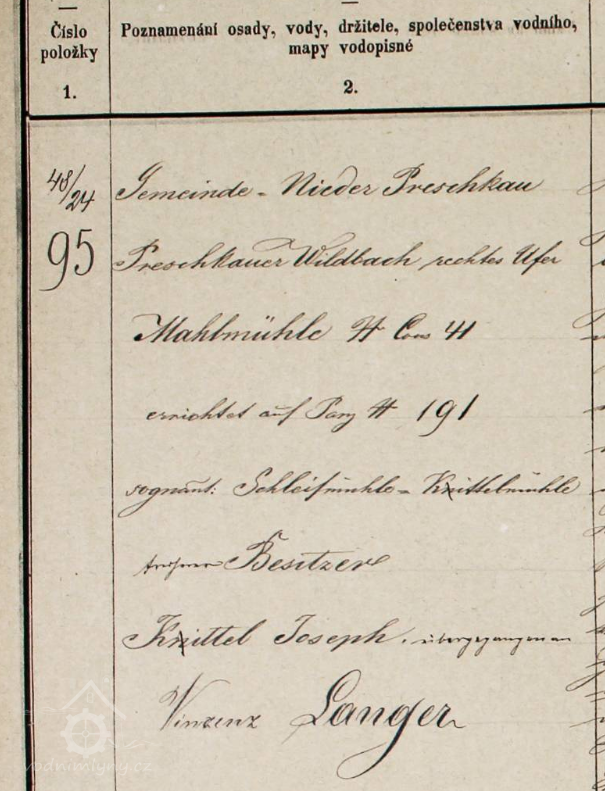 Číslo položky
Poznamenání osady, vody, držitele, společenstva vodního,
mapy vodopisné
1.
2.
48/24
Gemeinde - Nieder Preschkau
95
Preschkauer Wildbach rechtes Ufer
Mahlmühle # Con 41
errichtet auf Parz # 191
sognant: Schleifmühle - Knittelmühle
Besitzer
Knittel Joseph, übergegangen an
Vinzenz Langer
vodnimlyny.cz